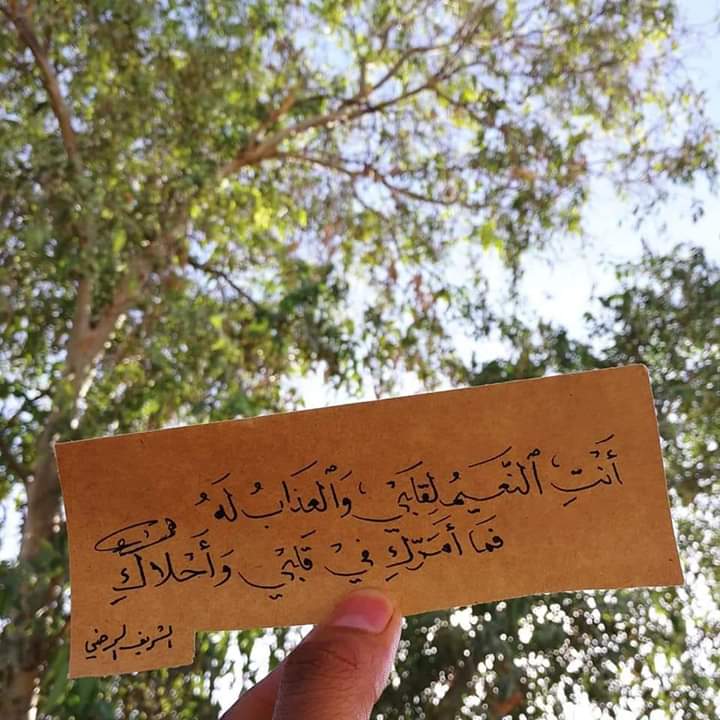 أَنْتِ ٱلنَّعِيمُ لِقَلْبِيْ وَٱلْعَذَابُ لَهُ
فَمَا أَمَرَّكِ فِيْ قَلْبِيْ وَأَحْلَاكِ
الشريف الرضي